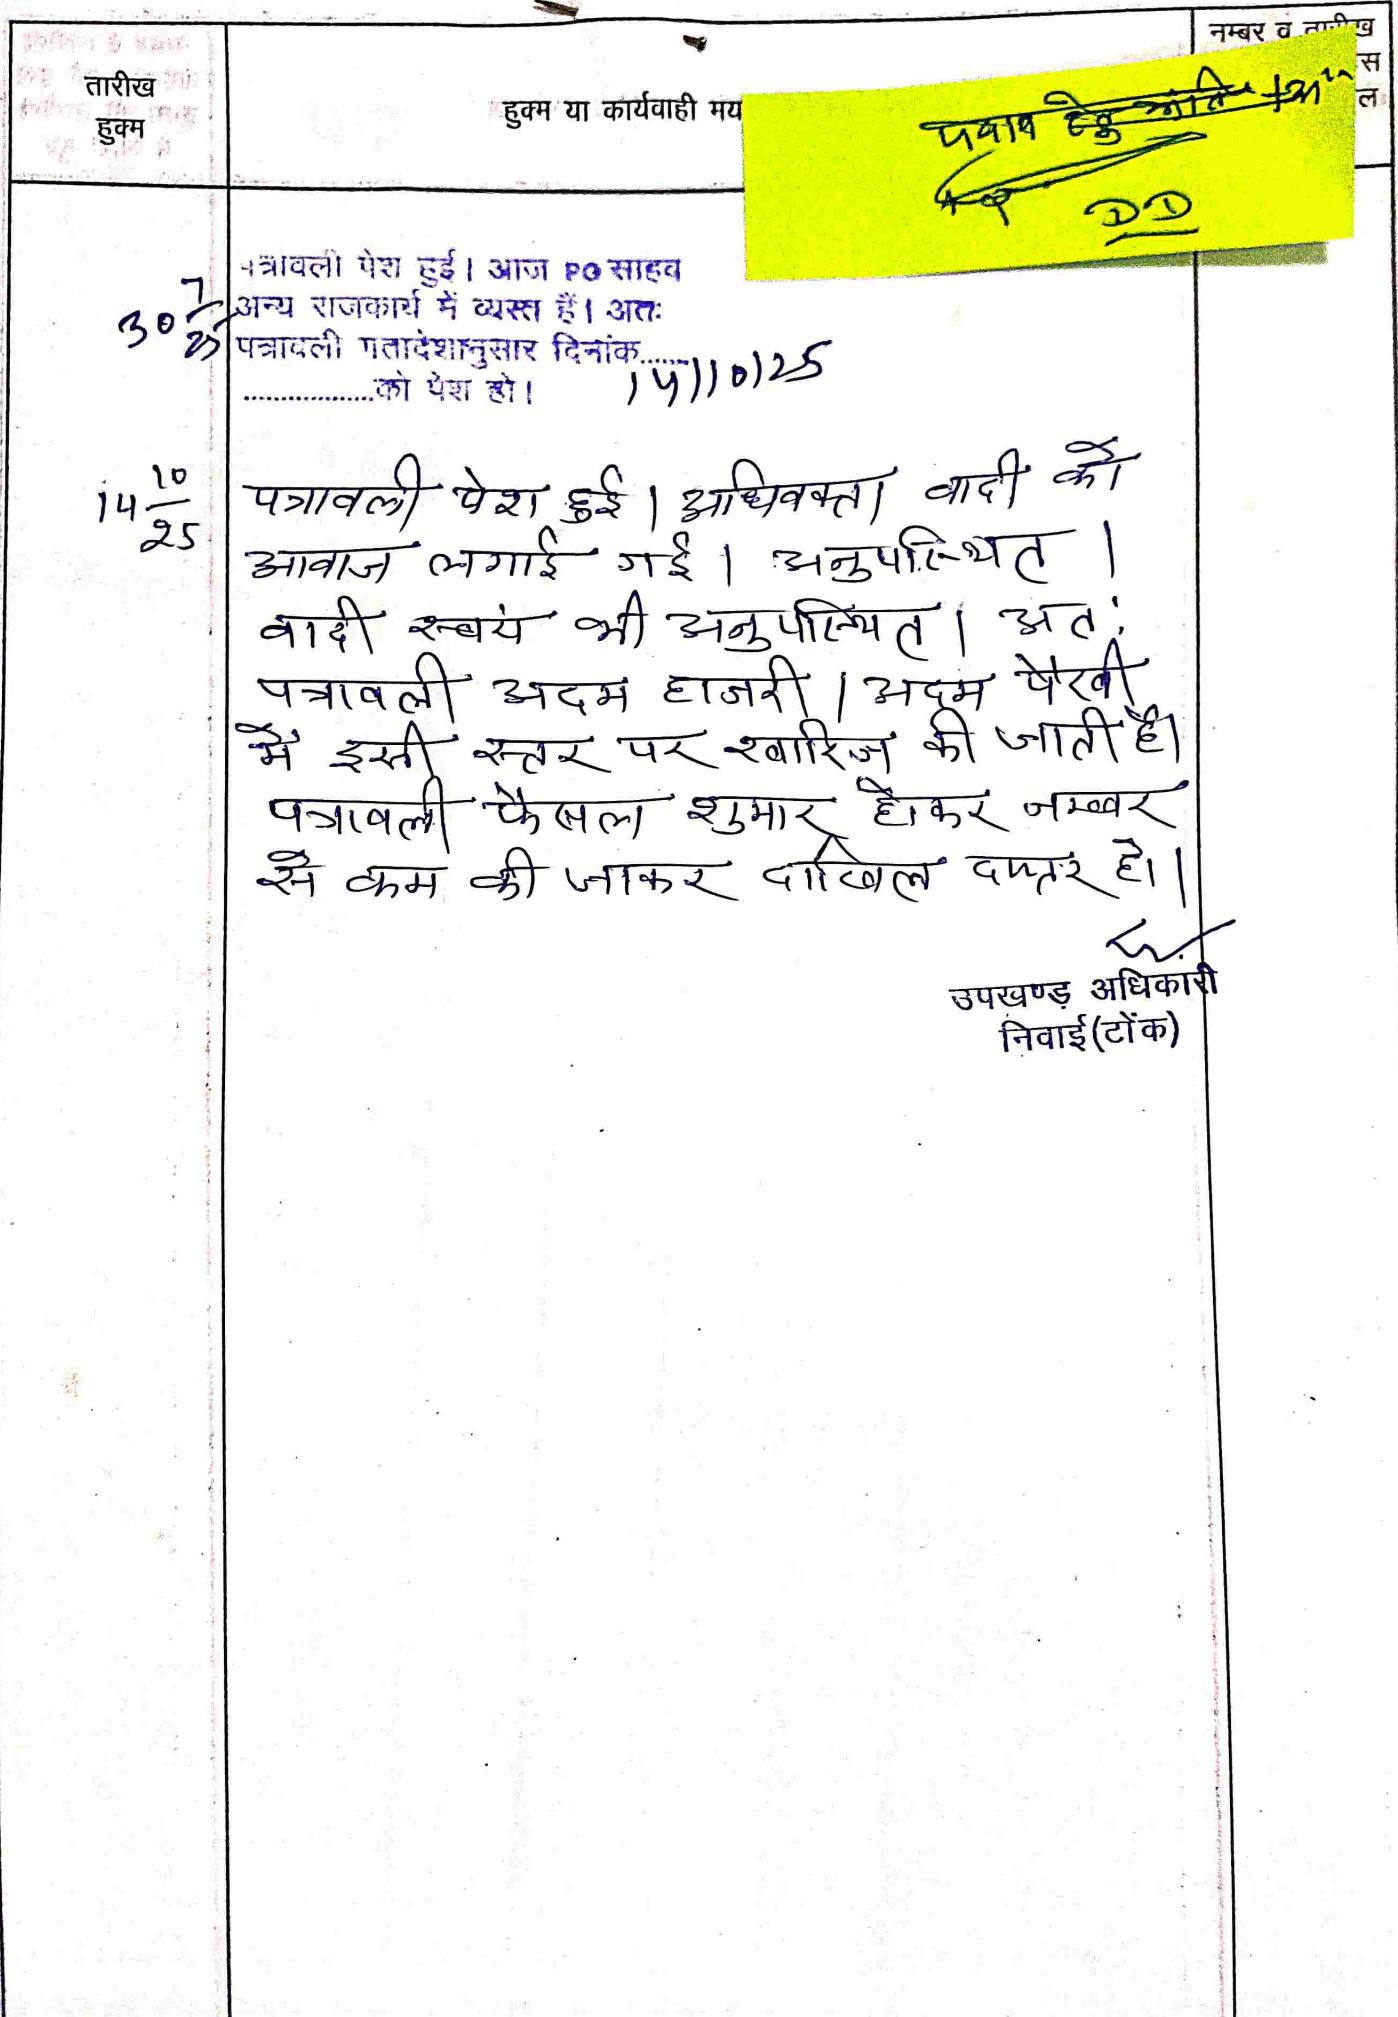 तारीख
हुक्म
हुक्म या कार्यवाही मय
नम्बर व तारीख
स
ल
हेतु
DD
30 7/25
पत्रावली पेश हुई। आज PO साहब
अन्य राजकार्य में व्यस्त हैं। अतः
पत्रावली गतादेशानुसार दिनांक......
..................को पेश हो। 14/10/25
14 10/25
पत्रावली पेश हुई। अधिवक्ता वादी को
आवाज लगाई गई। अनुपस्थित।
वादी स्वयं भी अनुपस्थित। अतः
पत्रावली अदम हाजरी / अदम पैरवी
में इसी स्तर पर खारिज की जाती है।
पत्रावली फैसल शुमार होकर नम्बर
से कम की जाकर दाखिल दफ्तर हो।
उपखण्ड अधिकारी
निवाई(टोंक)